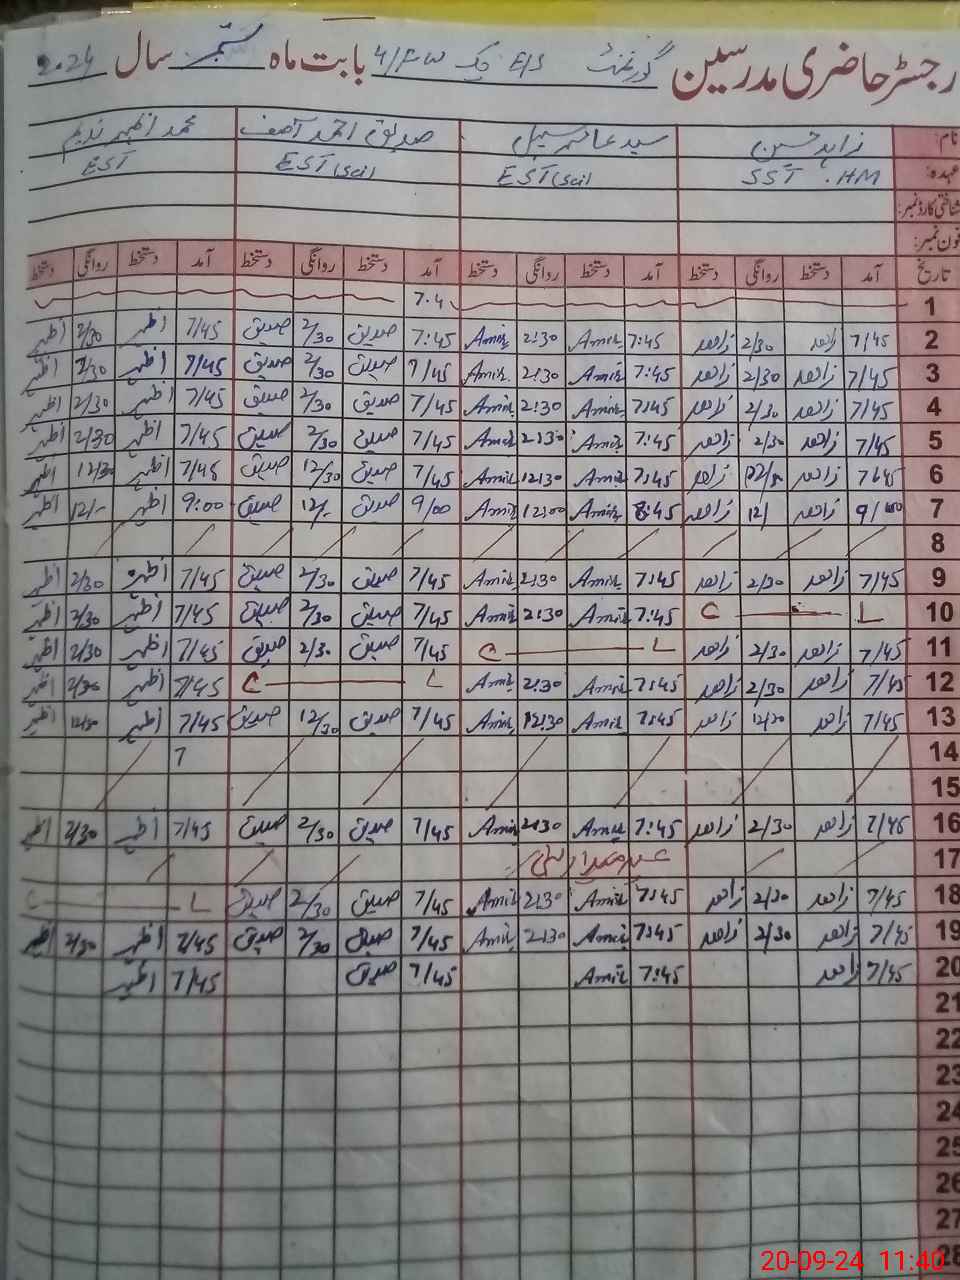 رجسٹر حاضری مدرسین گورنمنٹ E/S چک 4/FW بابت ماہ ستمبر سال 2024
نام: زاہد حسین سید عامر سہیل صدیق احمد آصف محمد اظہر ندیم
عہدہ: SST . HM EST(Sci) EST(Sci) EST
شناختی کارڈ نمبر:
فون نمبر:
تاریخ آمد دستخط روانگی دستخط آمد دستخط روانگی دستخط آمد دستخط روانگی دستخط آمد دستخط روانگی دستخط
1 7.4
2 7/45 زاہد 2/30 زاہد 7:45 Amir 2:30 Amir 7:45 صدیق 2/30 صدیق 7/45 اظہر 2/30 اظہر
3 7/45 زاہد 2/30 زاہد 7:45 Amir 2:30 Amir 7/45 صدیق 2/30 صدیق 7/45 اظہر 2/30 اظہر
4 7/45 زاہد 2/30 زاہد 7:45 Amir 2:30 Amir 7/45 صدیق 2/30 صدیق 7/45 اظہر 2/30 اظہر
5 7/45 زاہد 2/30 زاہد 7:45 Amir 2:30 Amir 7/45 صدیق 2/30 صدیق 7/45 اظہر 2/30 اظہر
6 7/45 زاہد زاہد 7:45 Amir 12:30 Amir 7/45 صدیق 12/30 صدیق 7/45 اظہر 12/30 اظہر
7 زاہد 12/ زاہد 8:45 Amir 12:00 Amir 9/00 صدیق 12/- صدیق 9:00 اظہر 12/- اظہر
8
9 7/45 زاہد 2/30 زاہد 7:45 Amir 2:30 Amir 7/45 صدیق 2/30 صدیق 7/45 اظہر 2/30 اظہر
10 L C 7:45 Amir 2:30 Amir 7/45 صدیق 2/30 صدیق 7/45 اظہر 2/30 اظہر
11 7/45 زاہد 2/30 زاہد L C 7/45 صدیق 2/30 صدیق 7/45 اظہر 2/30 اظہر
12 7/45 زاہد 2/30 زاہد 7:45 Amir 2:30 Amir L C 7/45 اظہر 2/30 اظہر
13 7/45 زاہد 12/30 زاہد 7:45 Amir 12:30 Amir 7/45 صدیق 12/30 صدیق 7/45 اظہر 12/30 اظہر
14 7
15
16 7/45 زاہد 2/30 زاہد 7:45 Amir 2:30 Amir 7/45 صدیق 2/30 صدیق 7/45 اظہر 2/30 اظہر
17 عید میلاد النبی
18 7/45 زاہد 2/30 زاہد 7:45 Amir 2:30 Amir 7/45 صدیق 2/30 صدیق L C
19 7/45 زاہد 2/30 زاہد 7:45 Amir 2:30 Amir 7/45 صدیق 2/30 صدیق 7/45 اظہر 2/30 اظہر
20 7/45 زاہد 7:45 Amir 7/45 صدیق 7/45 اظہر
21
22
23
24
25
26
27
28
20-09-24 11:40